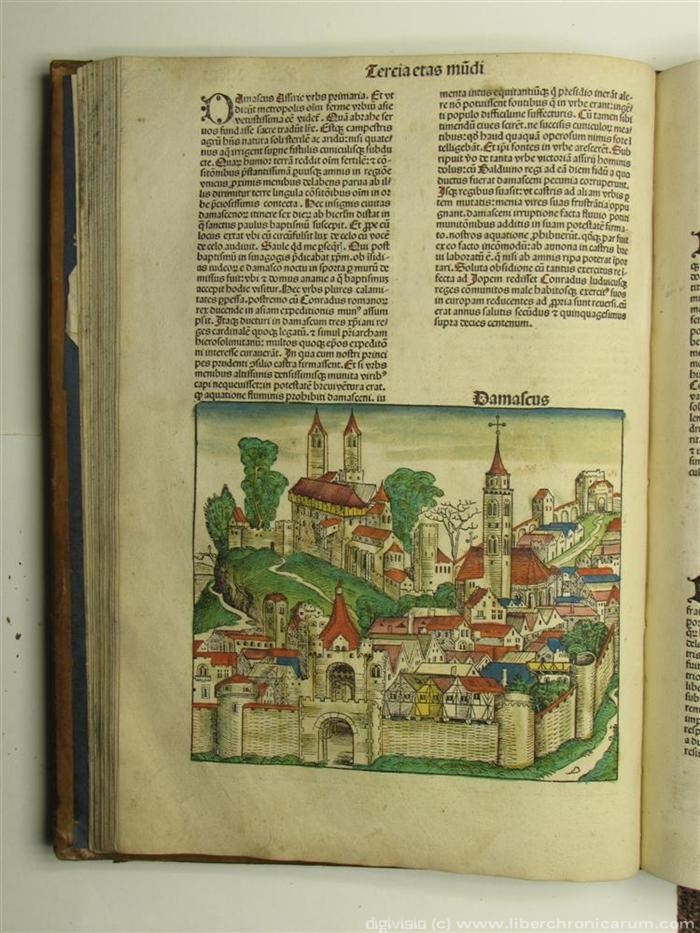 Tercia etas mũdi
DAmascus Assirie vrbs primaria. Et vt
dicũt metropolis oĩm ferme vrbiũ asie
vetustissima cẽ videt᷑. Quã abrahe ser
uos fundasse sacre tradũt lr̃e. Estq; campestris
agrũ hũs natura soli sterilẽ ac aridũ: nisi quate
nus aq̃ irrigent supne fistulis cuniculisq; subdu
cte. Quaȝ humor terrã reddit oĩm fertilẽ: 
vnicus ,pximis menibus delabens parua ab il/
lis dirimitur terre lingula cõsitõibus oĩm in or
be p̃ciosissimis contecta. Hec insignis ciuitas
damascenoꝝ itinere sex dieꝝ ab hierlm̃ distat in
q̃ sanctus paulus baptismũ suscepit. Et ,ppe eũ
locus extat vbi eũ circũfulsit lux de celo 
de celo audiuit. Saule qd me p̃seq̃ris. Qui post
baptismũ in sinagogis p̃dicabat xp̃m. ob 
as iudeoꝝ e damasco noctu in sporta p murũ de
missus fuit: vbi domus ananie a q̃ baptismuȝ
accepit hodie visitur. Hec vrbs plures calami
tates ,ppessa. postremo cũ Conradus romanoꝝ
rex ducende in asiam expeditionis munꝰ assum
psit. Itaq; ducturi in damascum tres xp̃iani re
ges cardinalẽ quoq; legatũ. simul p̃riarcham
hierosolimitanũ: multos quoq; ep̃os expeditõ
ni interesse curauerãt. In qua cum nostri princi
pes prudenti ,psilio castra firmassent. Et si vrbs
menibus altissimis densissimisq; munita viribꝰ
capi nequeuisset: in potestatẽ breui vẽtura erat.
aquatione fluminis prohibiti damasceni. iu
menta intus equitantiũq; q̃ p̃sidio inerãt ale/
re nõ potuissent fontibus q̃ in vrbe erant: ingẽ/
ti populo difficulime suffecturis. Cũ tamen sibi
timendũ ciues sc̃irẽt. ne succisis cuniculoꝝ mea/
tibus: qd haud quaquã operosum nimis fore ĩ
telligebãt. Et ip̃i fontes in vrbe arescerẽt. Sub
ripuit ṽo de tanta vrbe victoriã assirij hominis
dolus: cũ Balduino regi ad eã diem fidũ a quo
ductus fuerat damasceni pecunia corruperunt.
Isq; regibus suasit: vt castris ad aliam vrbis p̃
tem mutatis: menia vires suas frustrãtia oppu
gnant. damasceni irruptione facta fluuio 
munitõnibus additis in suam potestatẽ firma/
to. nostros aquatione ,phibuerũt. par fuit
ex eo facto incõmodũ: ab annona in castris bre
ui laboratũ ẽ. q̃ nisi ab amnis ripa poterat ĩpor
tari. Soluta obsidione cũ tantus exercitus re ĩ/
fecta ad Jopem redisset Conradus ludouicusq;
reges cõmunitos male habitosq; exercitꝰ suos
in europam reducentes ad ,ppria sunt reuersi. cũ
erat annus salutis secũdus quinquagesimus
supra decies centenum.
Damascus
digivisio (c) www.liberchronicarum.com